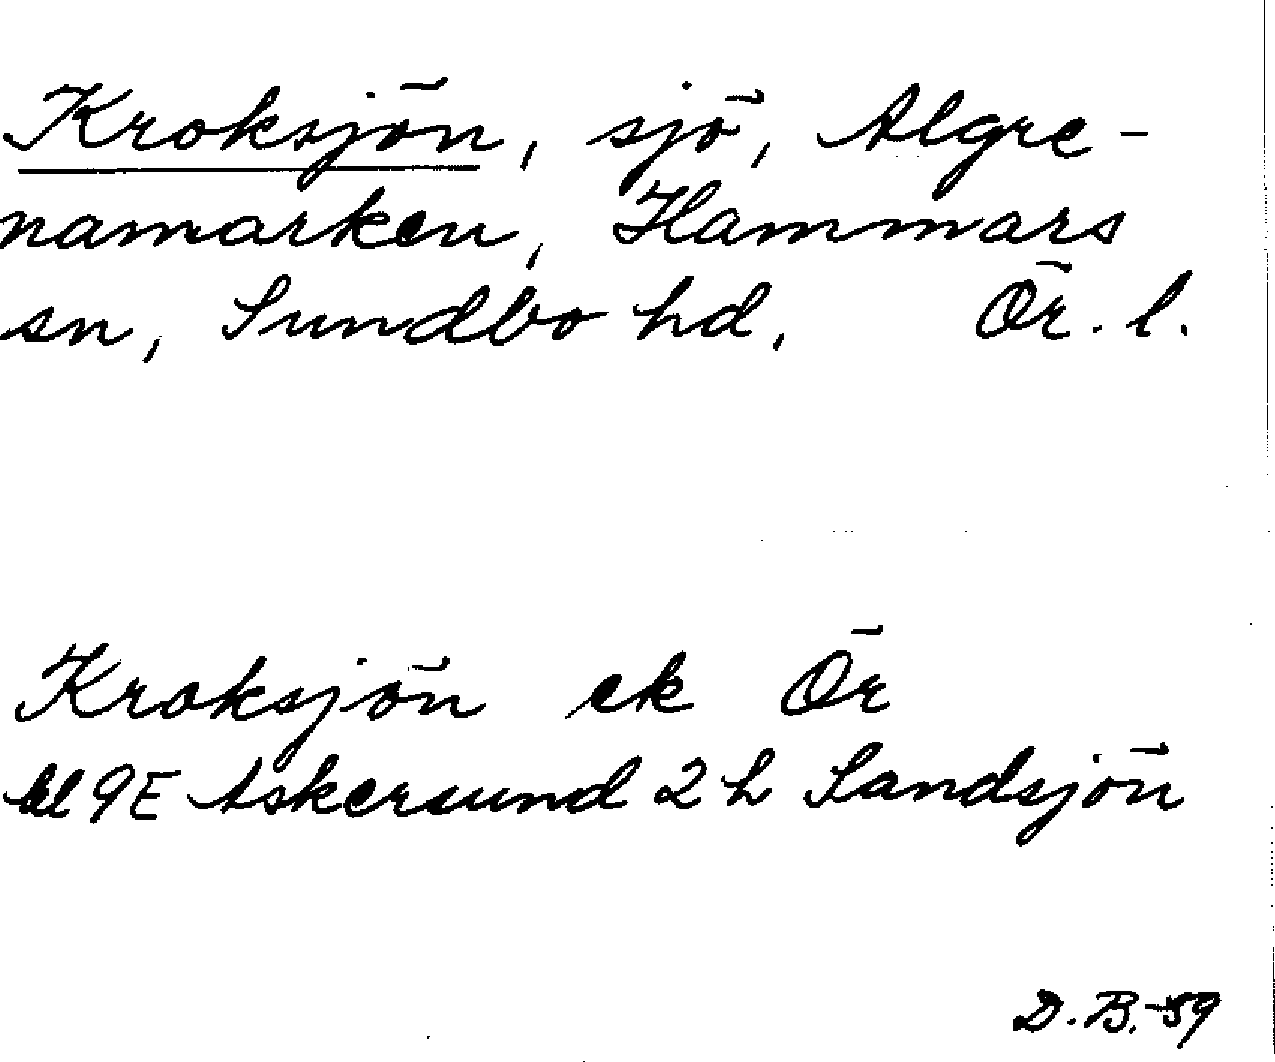 Kroksjön, sjö, Algre-
namarken, Hammars
sn, Sundbo hd, Ör. l.
Kroksjön ek Ör
bl 9E Askersund 2 h Sandsjön
D. B. -59